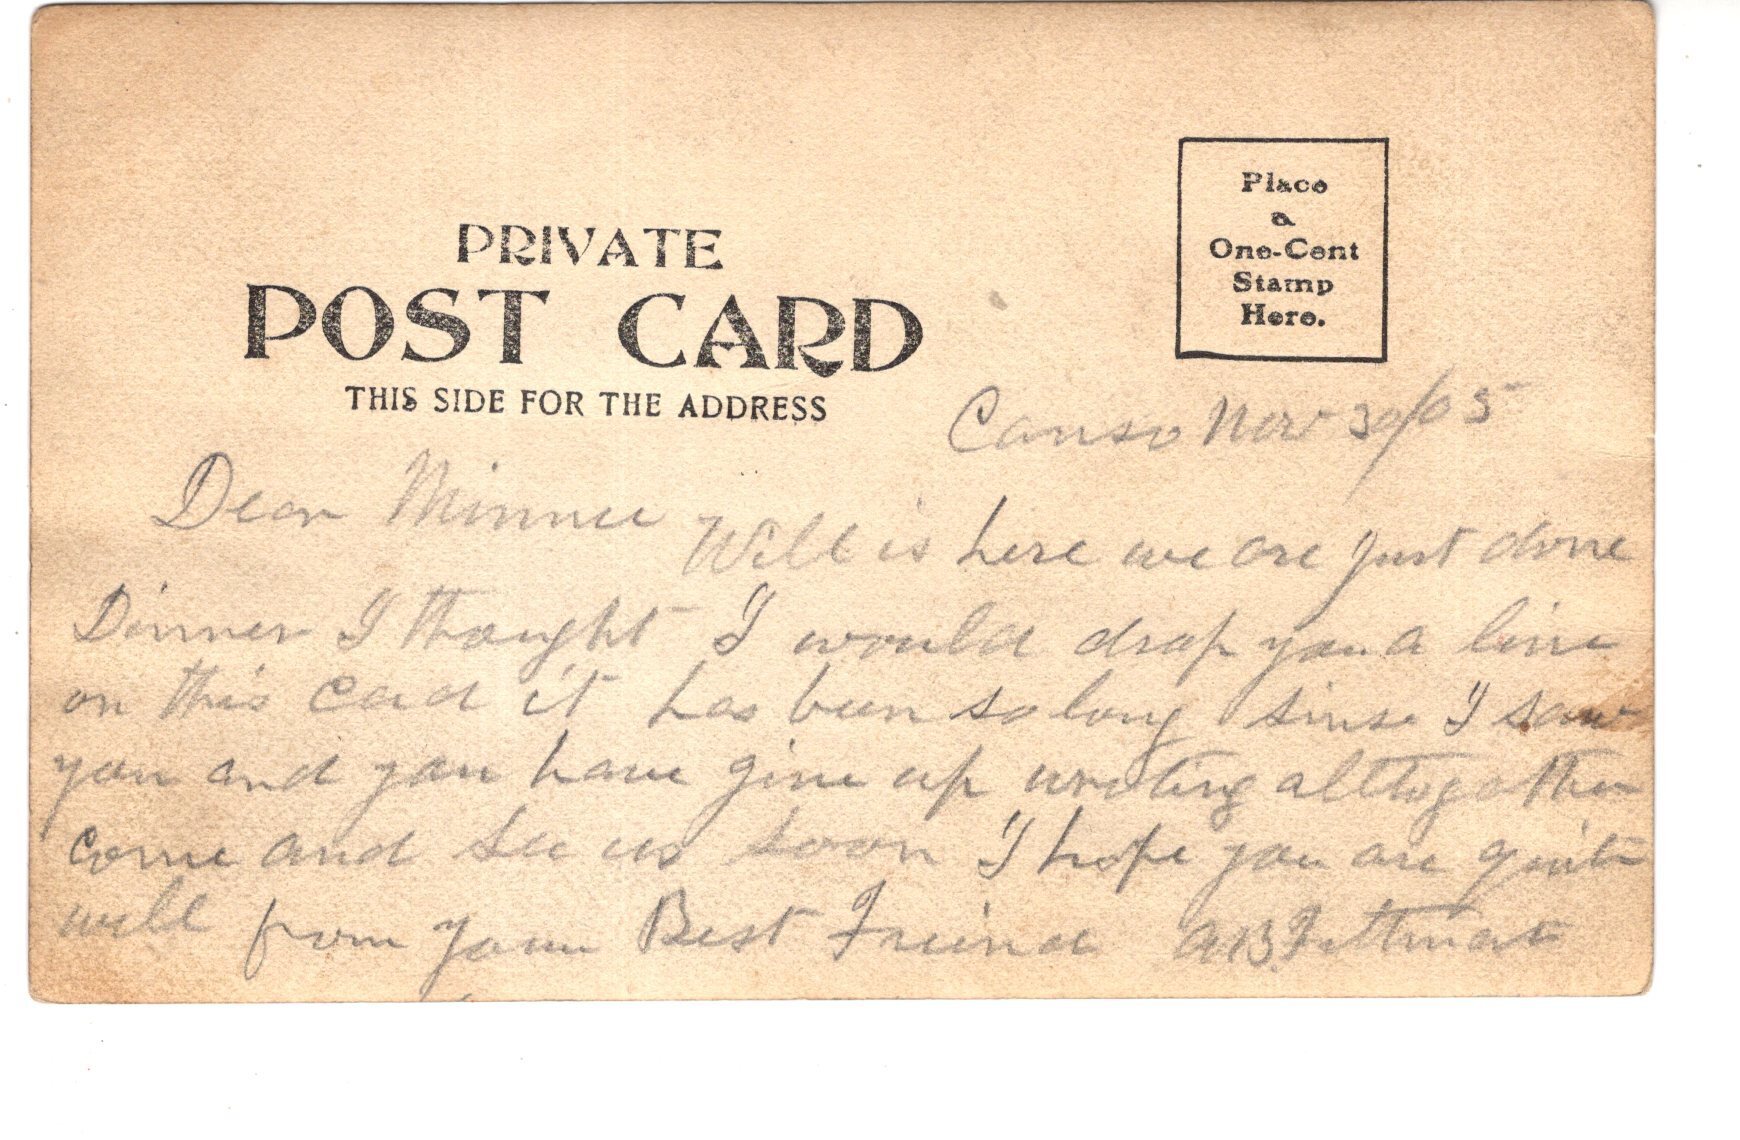 PRIVATE
POST CARD
THIS SIDE FOR THE ADDRESS
Place
a
One-Cent
Stamp
Here.
Canso Nov 30/05
Dear Minnie
Will is here we are just done
Dinner I thought I would drop you a line
on this Card it has been so long sinse I saw
you and you have give up writing alltogather
Come and see us soon I hope you are quite
well from your Best Freind A.B.